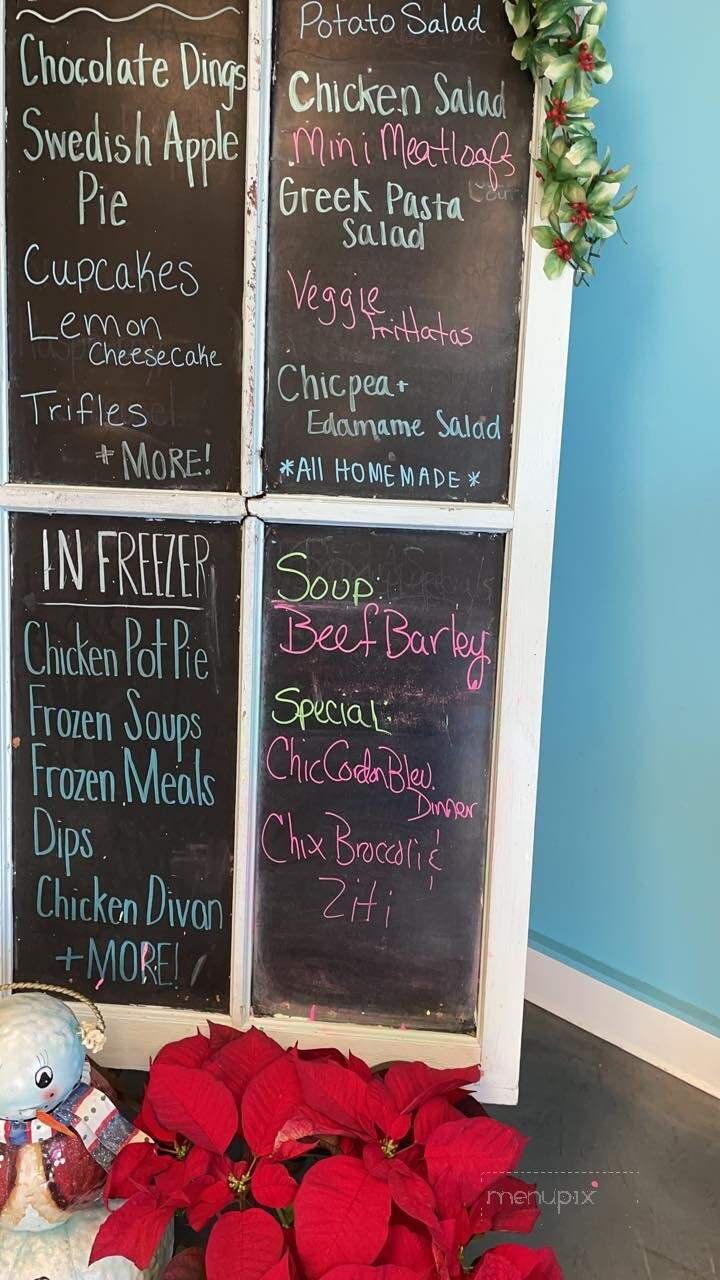 Chocolate Dings
Swedish Apple
Pie
Cupcakes
Lemon
Cheesecake
Trifles
+ MORE!
Potato Salad
Chicken Salad
Mini Meatloafs
Greek Pasta
Salad
Veggie
Frittatas
Chicpea +
Edamame Salad
*All HOMEMADE*
IN FREEZER
Chicken Pot Pie
Frozen Soups
Frozen Meals
Dips
Chicken Divan
+MORE!
Soup:
Beef Barley
Special:
Chic Cordon Bleu
Dinner
Chix Broccoli &
Ziti
menupix